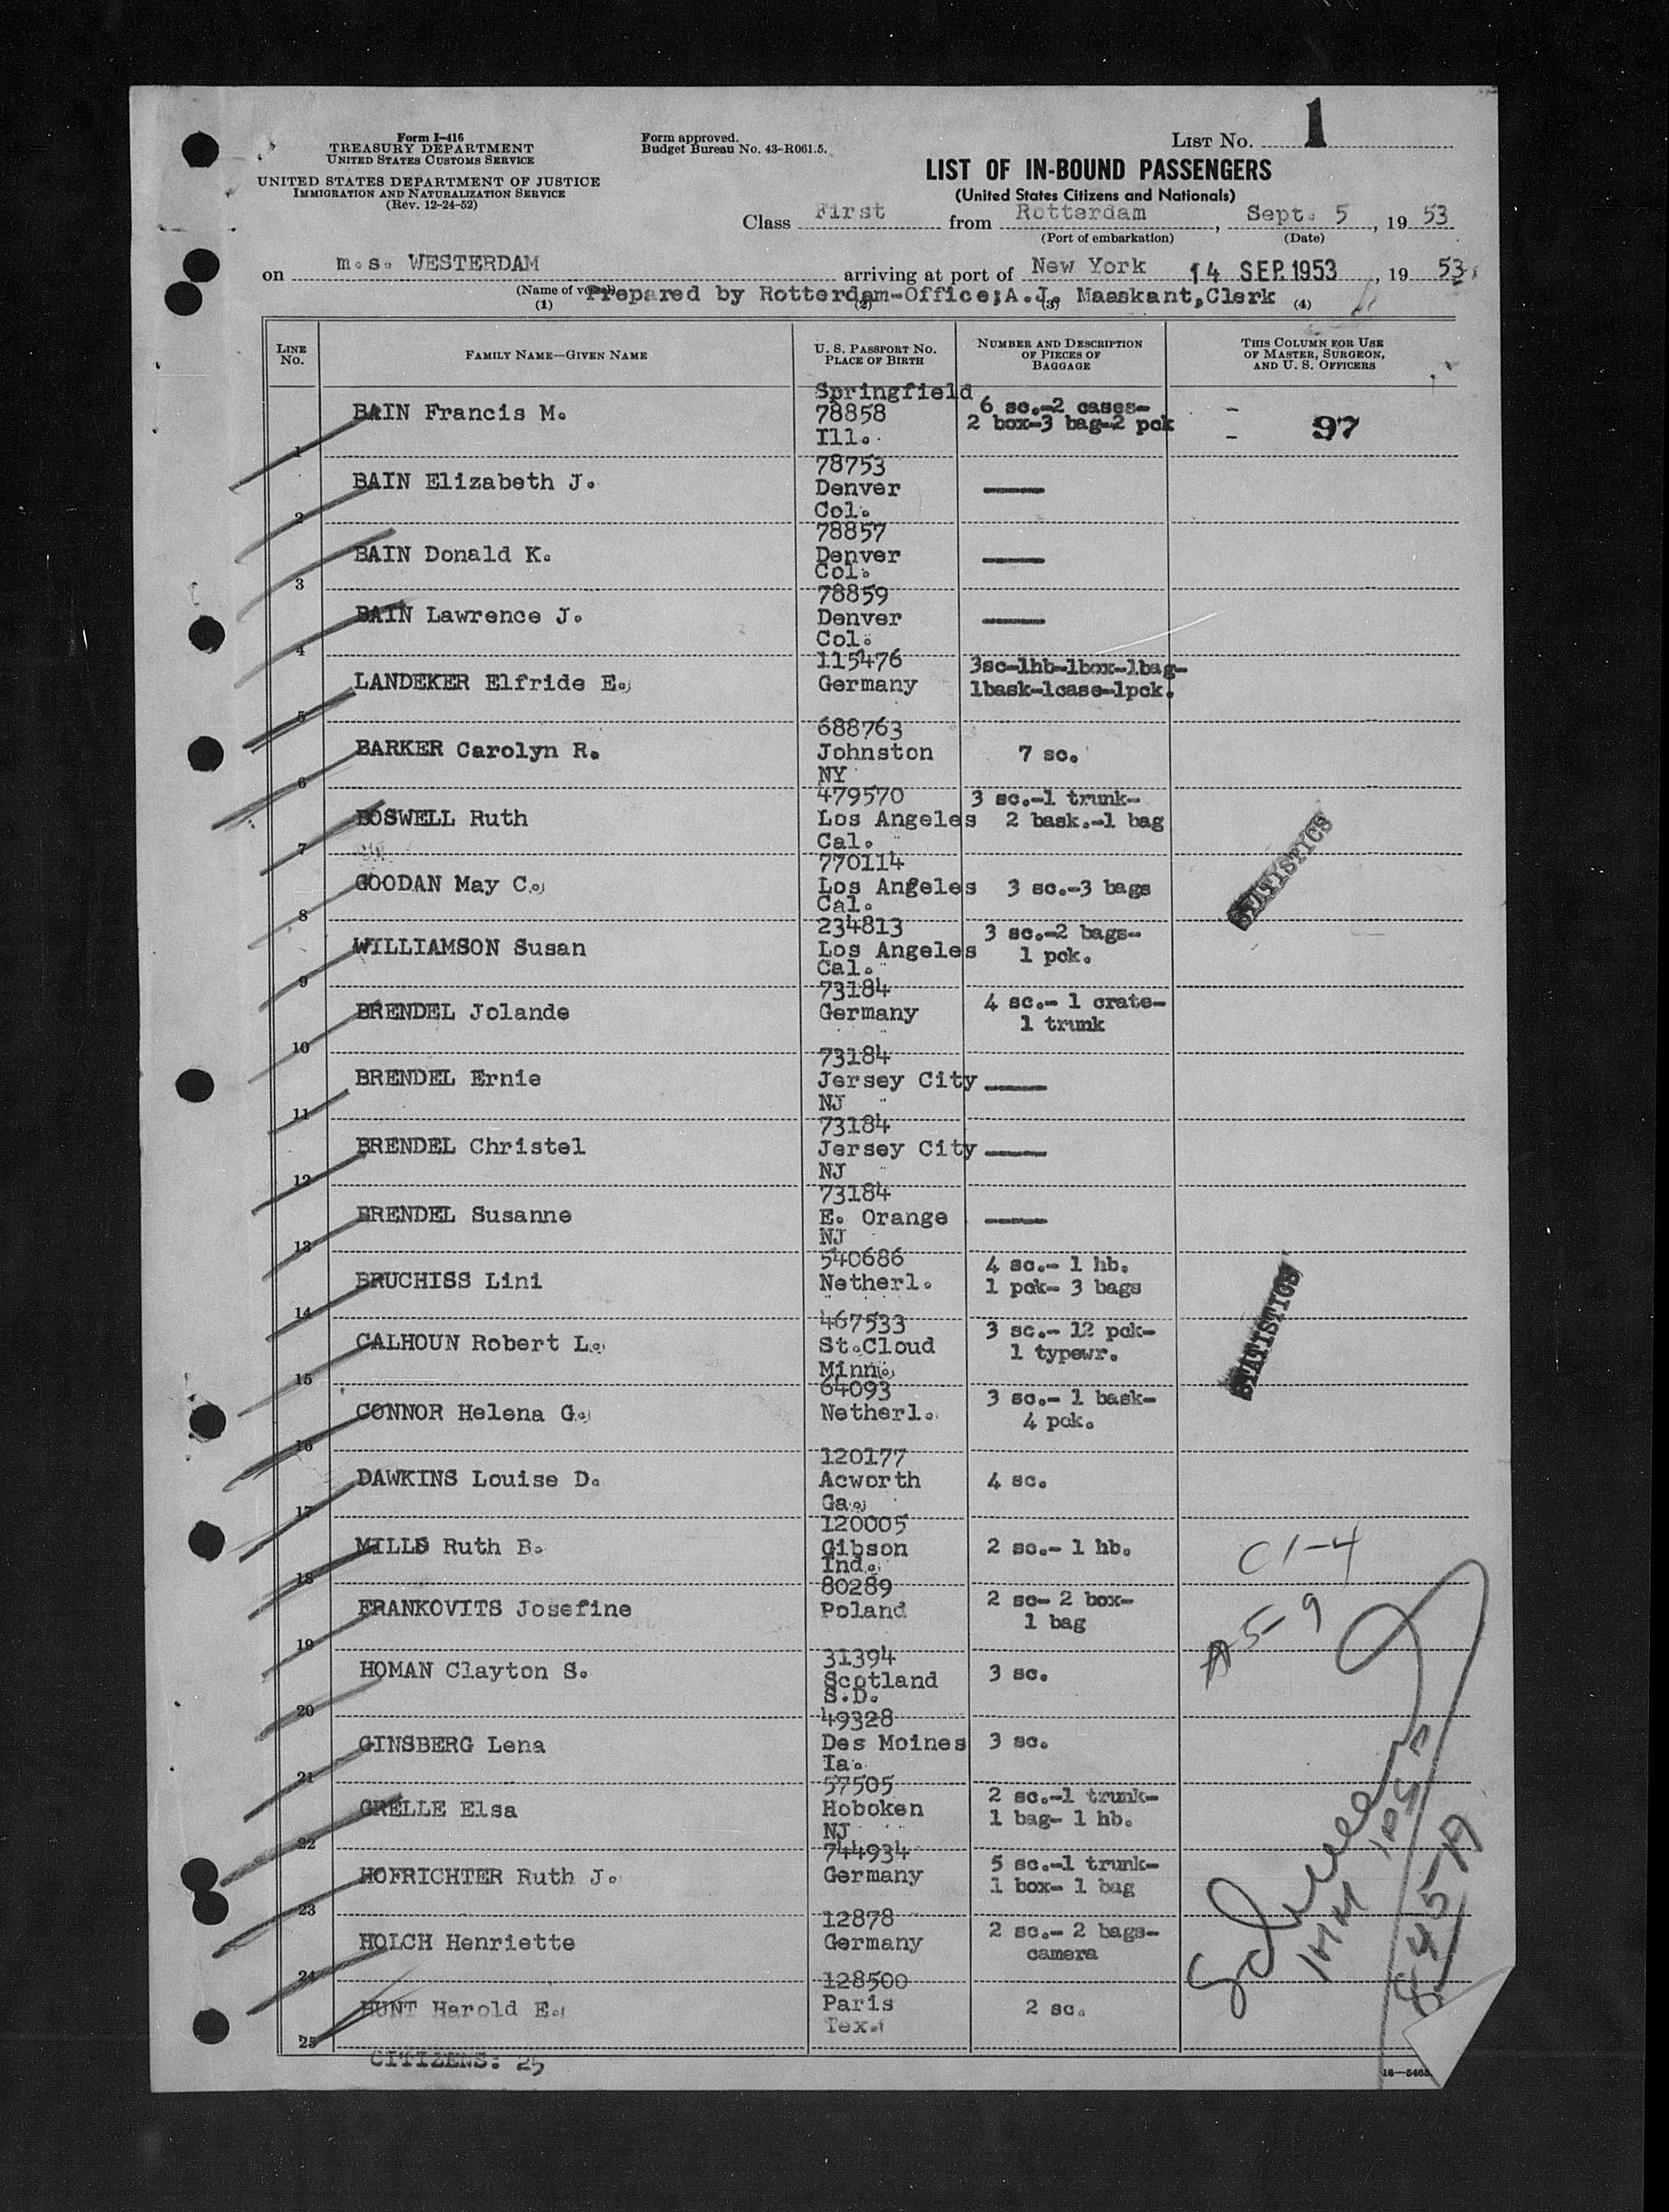 Form I-416
TREASURY DEPARTMENT
UNITED STATES CUSTOMS SERVICE
UNITED STATES DEPARTMENT OF JUSTICE
IMMIGRATION AND NATURALIZATION SERVICE
(Rev. 12-24-52)
Form approved.
Budget Bureau No. 43-R061.5.
LIST NO. 1
LIST OF IN-BOUND PASSENGERS
(United States Citizens and Nationals)
Class First from Rotterdam, Sept. 5, 19 53
(Port of embarkation) (Date)
on m.s. WESTERDAM arriving at port of New York 14 SEP. 1953, 19 53
(Name of vessel)
Prepared by Rotterdam-Office; A.J. Maaskant, Clerk
(1) (2) (3) (4)
LINE NO. FAMILY NAME—GIVEN NAME U. S. PASSPORT NO. PLACE OF BIRTH NUMBER AND DESCRIPTION OF PIECES OF BAGGAGE THIS COLUMN FOR USE OF MASTER, SURGEON, AND U. S. OFFICERS
1 BAIN Francis M. Springfield 78858 Ill. 6 sc.-2 cases- 2 box-3 bag-2 pck - - 97
2 BAIN Elizabeth J. 78753 Denver Col. —
3 BAIN Donald K. 78857 Denver Col. —
4 BAIN Lawrence J. 78859 Denver Col. —
5 LANDEKER Elfride E. 115476 Germany 3sc-1hb-1box-1bag- 1bask-1case-1pck.
6 BARKER Carolyn R. 688763 Johnston NY 7 sc.
7 BOSWELL Ruth 479570 Los Angeles Cal. 3 sc.-1 trunk- 2 bask.-1 bag
8 GOODAN May C. 770114 Los Angeles Cal. 3 sc.-3 bags STATISTICS
9 WILLIAMSON Susan 234813 Los Angeles Cal. 3 sc.-2 bags- 1 pck.
10 BRENDEL Jolande 73184 Germany 4 sc.- 1 crate- 1 trunk
11 BRENDEL Ernie 73184 Jersey City NJ —
12 BRENDEL Christel 73184 Jersey City NJ —
13 BRENDEL Susanne 73184 E. Orange NJ —
14 BRUCHISS Lini 540686 Netherl. 4 sc.- 1 hb. 1 pck- 3 bags STATISTICS
15 CALHOUN Robert L. 467533 St.Cloud Minn. 3 sc.- 12 pck- 1 typewr.
16 CONNOR Helena G. 64093 Netherl. 3 sc.- 1 bask- 4 pck.
17 DAWKINS Louise D. 120177 Acworth Ga. 4 sc.
18 MILLS Ruth B. 120005 Gibson Ind. 2 sc.- 1 hb. C1-4
19 FRANKOVITS Josefine 80289 Poland 2 sc- 2 box- 1 bag A5-9
20 HOMAN Clayton S. 31394 Scotland S.D. 3 sc.
21 GINSBERG Lena 49328 Des Moines Ia. 3 sc.
22 GRELLE Elsa 57505 Hoboken NJ 2 sc.-1 trunk- 1 bag- 1 hb.
23 HOFRICHTER Ruth J. 744934 Germany 5 sc.-1 trunk- 1 box- 1 bag
24 HOLCH Henriette 12878 Germany 2 sc.- 2 bags- camera
25 HUNT Harold E. 128500 Paris Tex. 2 sc.
845A
CITIZENS: 25